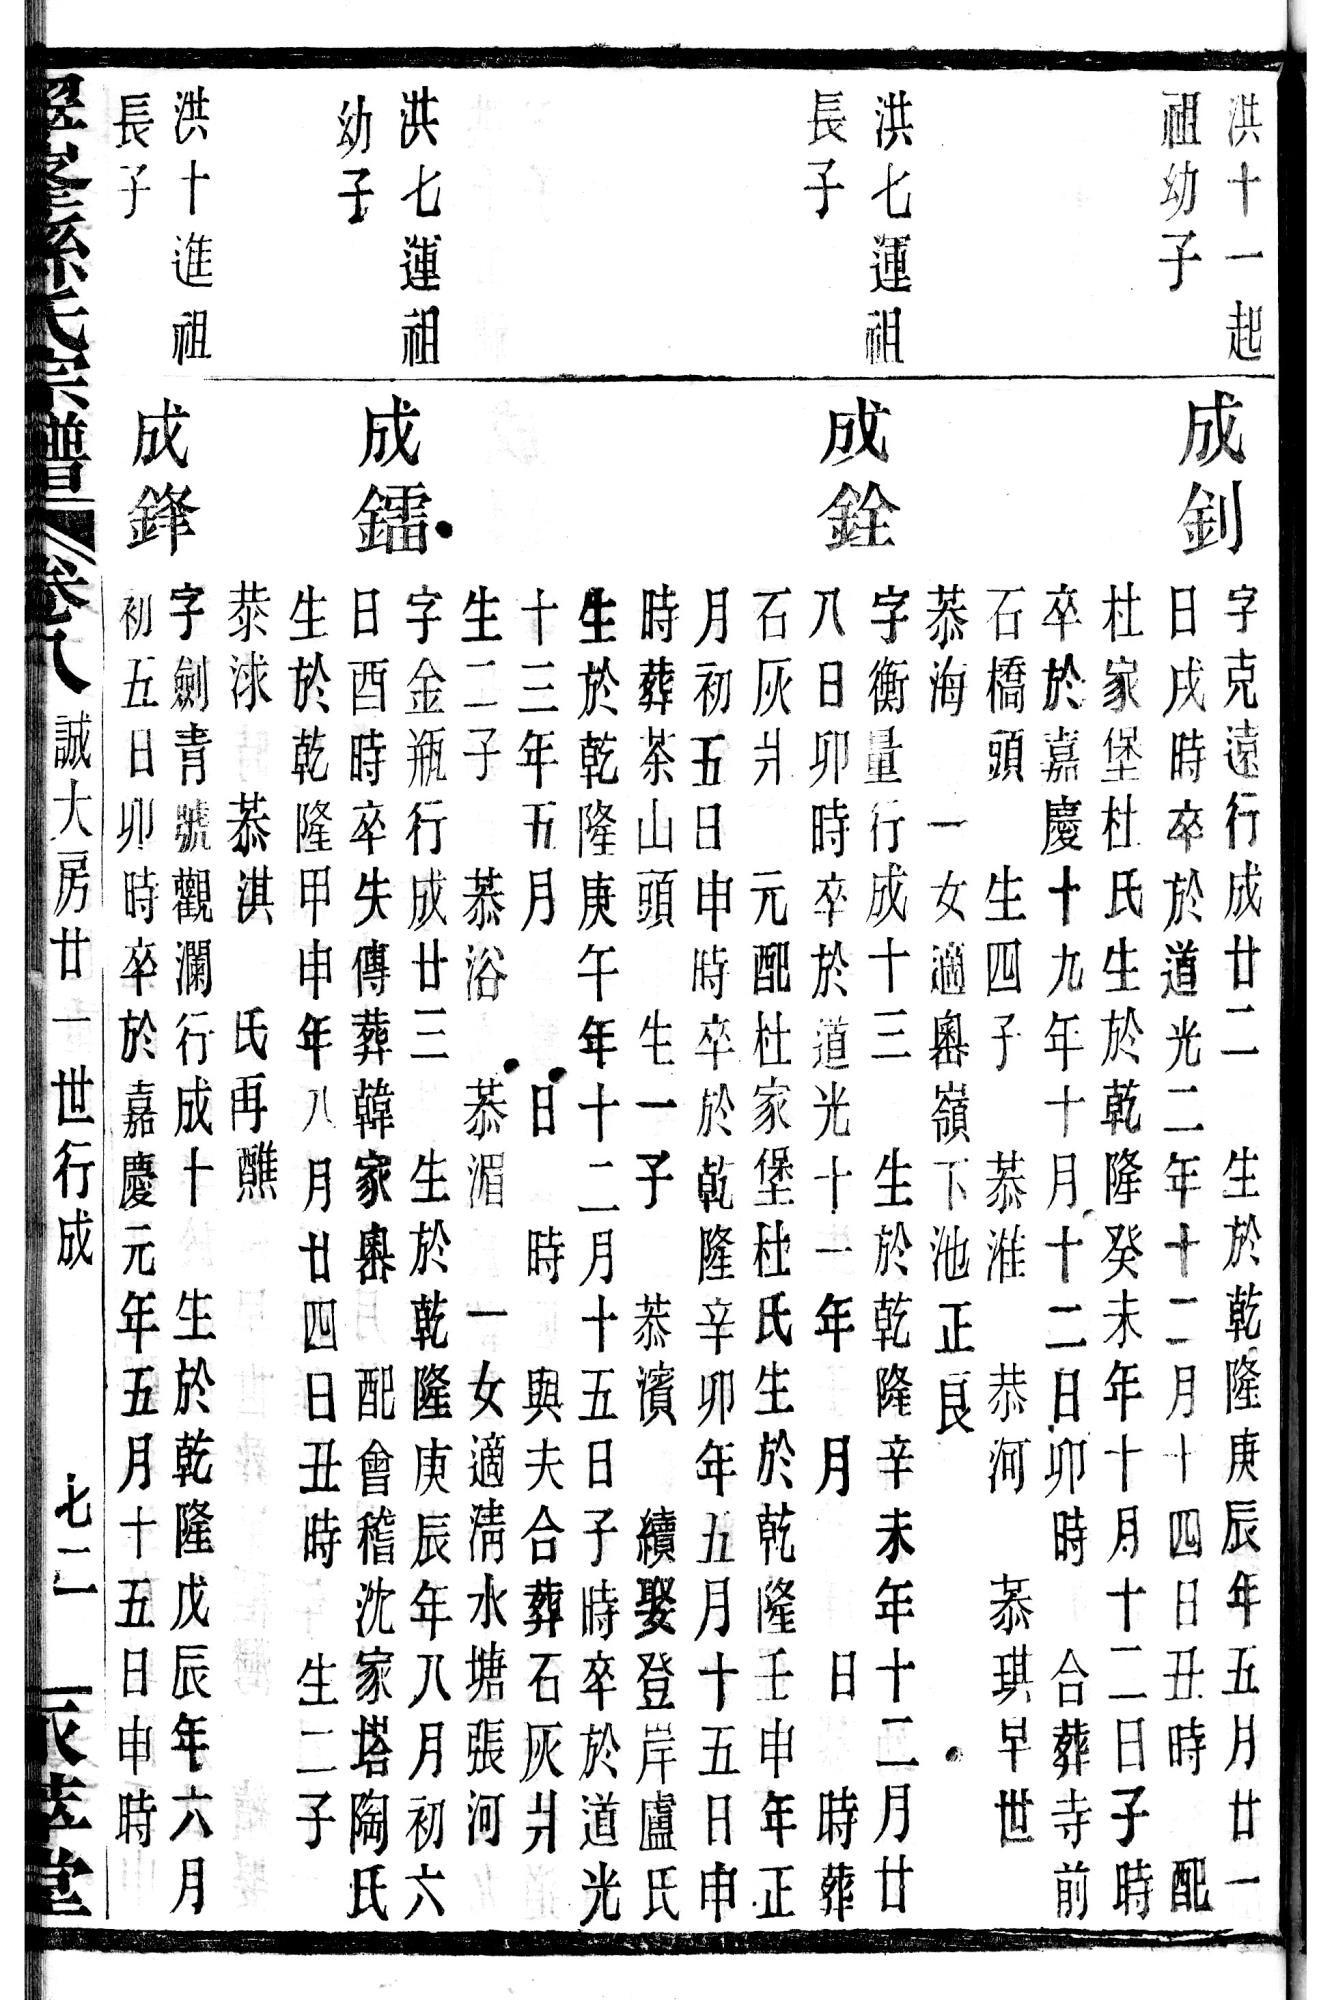 洪十一起
祖幼子
成釗
字克遠行成廿二　生於乾隆庚辰年五月廿一
日戌時卒於道光二年十二月十四日丑時　配
杜家堡杜氏生於乾隆癸未年十月十二日子時
卒於嘉慶十九年十月十二日卯時　合葬寺前
石橋頭　生四子　恭淮　恭河　恭琪早世
恭海　一女適嶴嶺下池正良
洪七運祖
長子
成銓
字衡量行成十三　生於乾隆辛未年十二月廿
八日卯時卒於道光十一年　月　日　時葬
石灰爿　元配杜家堡杜氏生於乾隆壬申年正
月初五日申時卒於乾隆辛卯年五月十五日申
時葬茶山頭　生一子　恭濱　續娶登岸盧氏
生於乾隆庚午年十二月十五日子時卒於道光
十三年五月　日　時　與夫合葬石灰爿
生二子　恭浴　恭湄　一女適淸水塘張河
洪七運祖
幼子
成鐳
字金瓶行成廿三　生於乾隆庚辰年八月初六
日酉時卒失傳葬韓家嶴　配會稽沈家塔陶氏
生於乾隆甲申年八月廿四日丑時　生二子
恭浗　恭淇　氏再醮
洪十進祖
長子
成鋒
字劍青號觀瀾行成十　生於乾隆戊辰年六月
初五日卯時卒於嘉慶元年五月十五日申時
孫氏宗譜　卷八　誠大房廿一世行成　七二　萃堂